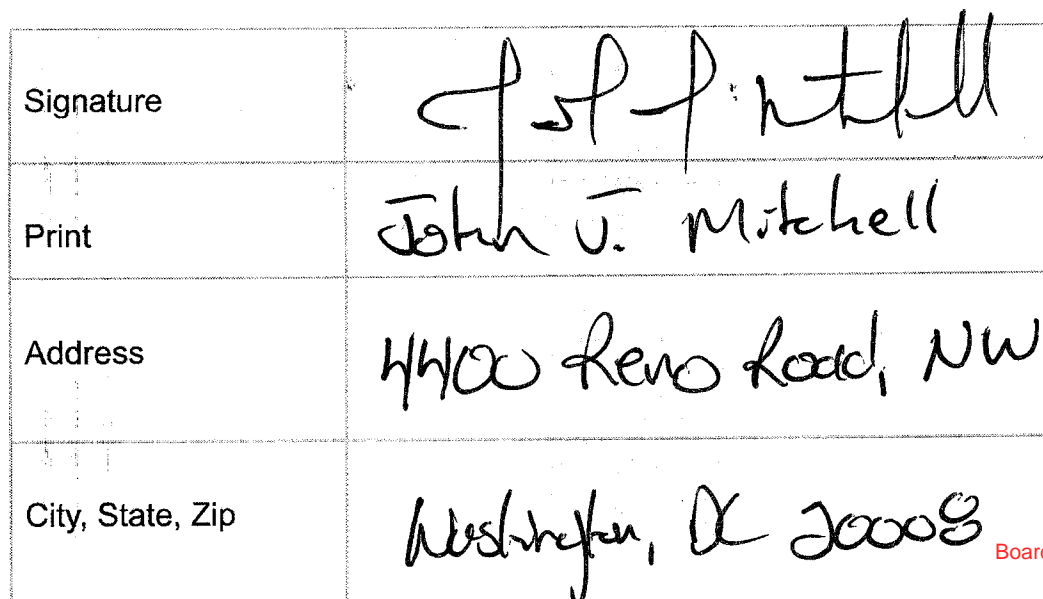 Signature
Print John J. Mitchell
Address 4400 Reno Road, NW
City, State, Zip Washington, DC 20008
Board